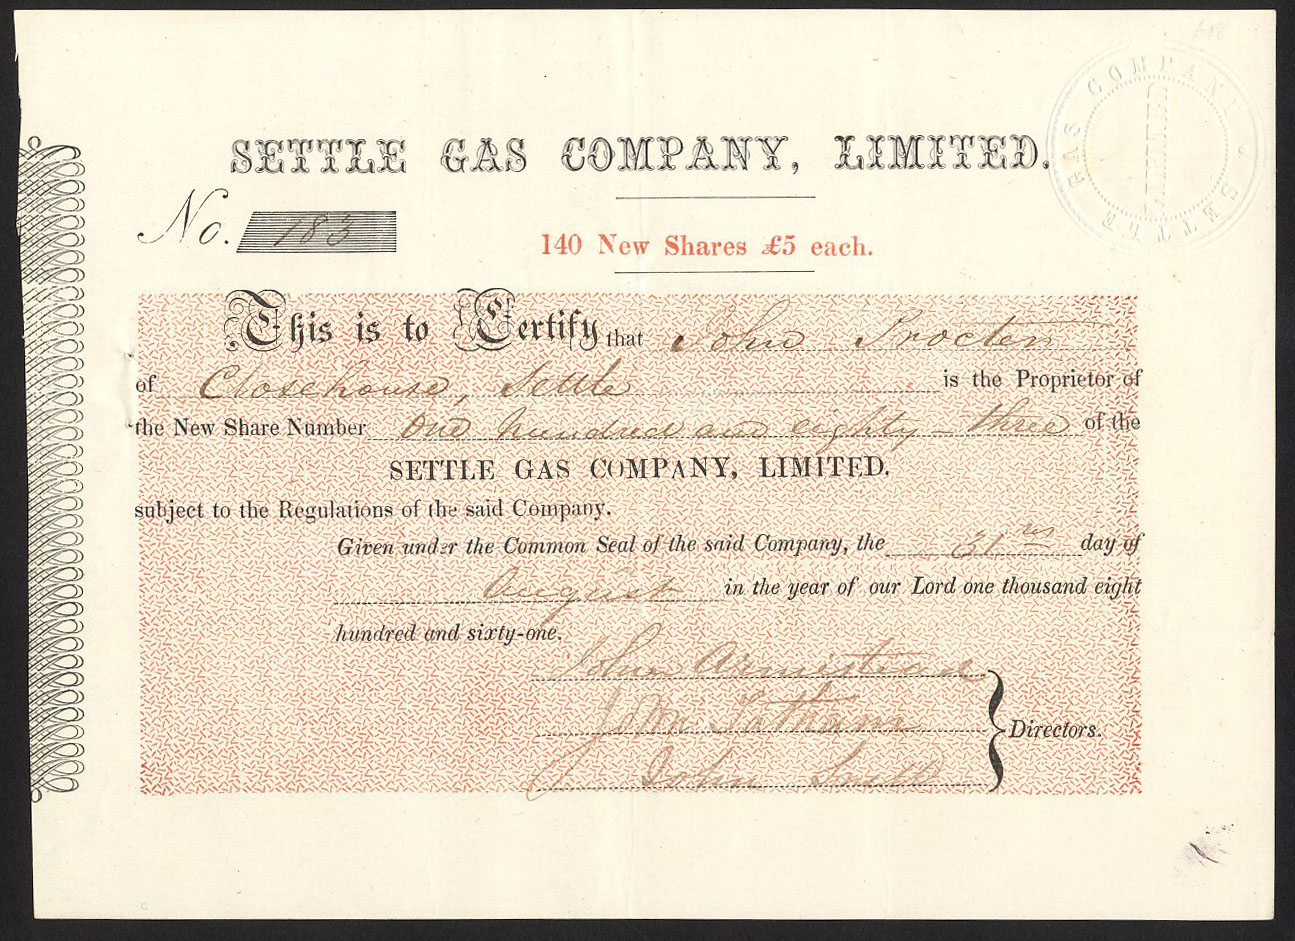 SETTLE GAS COMPANY, LIMITED.
SETTLE GAS COMPANY
LIMITED
No. 183
140 New Shares £5 each.
This is to Certify that John Procter
of Closehouse, Settle is the Proprietor of
the New Share Number One hundred and eighty-three of the
SETTLE GAS COMPANY, LIMITED.
subject to the Regulations of the said Company.
Given under the Common Seal of the said Company, the 31 day of
August in the year of our Lord one thousand eight
hundred and sixty-one.
John Armistead
John Tatham
Directors.
John Smith